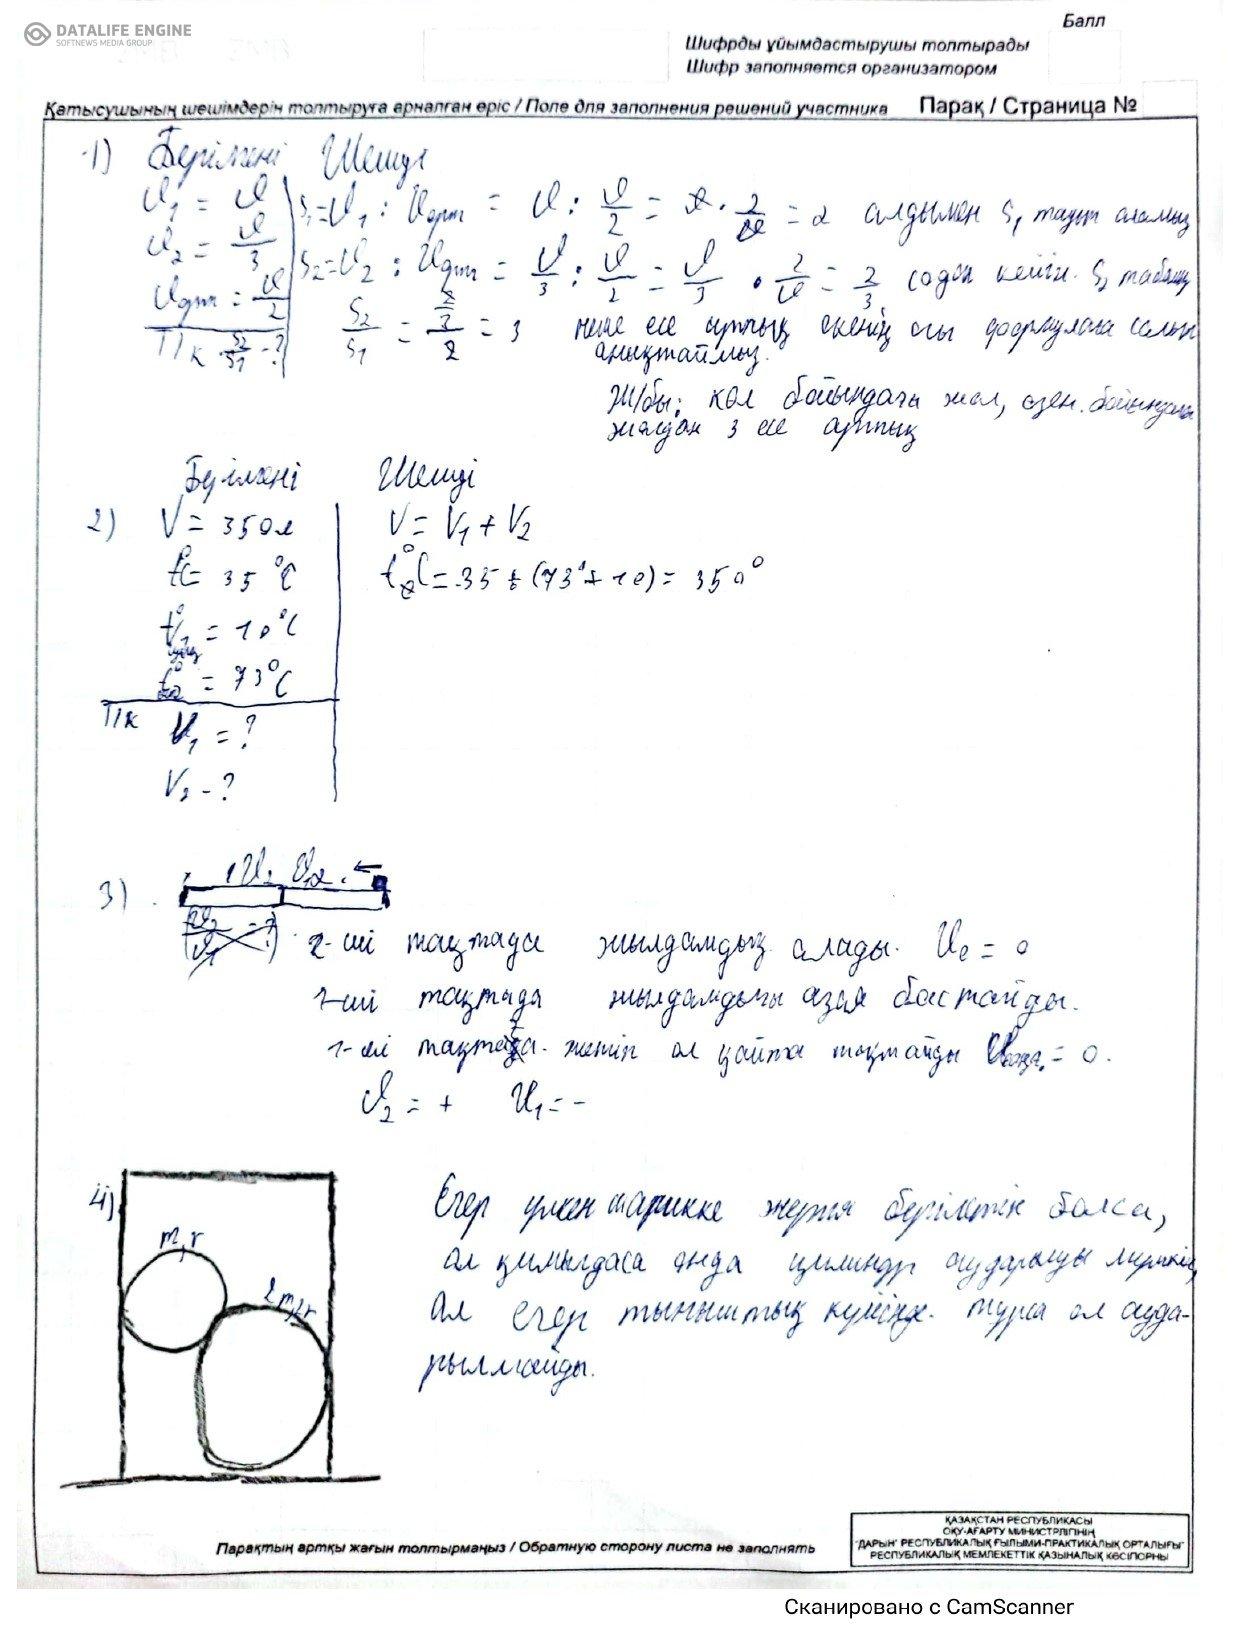 DATALIFE ENGINE
SOFTNEWS MEDIA GROUP
Балл
Шифрды ұйымдастырушы толтырады
Шифр заполняется организатором
Қатысушының шешімдерін толтыруға арналған өріс / Поле для заполнения решений участника Парақ / Страница №
1) Берілгені Шешуі
ϑ₁ = ϑ S₁=ϑ₁ : ϑорт = ϑ : ϑ/2 = ϑ · 2/ϑ = 2 алдымен S₁ тауып аламыз
ϑ₂ = ϑ/3 S₂=ϑ₂ : ϑорт = ϑ/3 : ϑ/2 = ϑ/3 · 2/ϑ = 2/3 содан кейін S₂ табамыз
ϑорт = ϑ/2 S₂/S₁ = 2/3/2 = 3 неше есе артық екенін осы формулаға салып
Т/к S₂/S₁ - ? анықтаймыз.
Ж/бы: көл бойындағы жол, өзен бойындағы
жолдан 3 есе артық
Берілгені Шешуі
2) V = 350л V = V₁ + V₂
t°C = 35°C = 35 + (73°+10) = 350°
= 10°C
= 73°C
Т/к V₁ = ?
V₂ - ?
3) ϑ₁ ϑ₂
2-ші тақтада жылдамдық алады. ϑ₀ = 0
1-ші тақтада жылдамдығы азая бастайды.
1-ші жетіп ол қайта = 0.
ϑ₂ = + ϑ₁ = -
4) m, r
2m, 2r
Егер үлкен шарикке жерге берілетін болса,
ол қимылдаса онда цилиндр аударылуы мүмкін,
ал егер тыныштық күйінде тұрса ол ауда-
рылмайды.
Парақтың артқы жағын толтырмаңыз / Обратную сторону листа не заполнять
ҚАЗАҚСТАН РЕСПУБЛИКАСЫ
ОҚУ-АҒАРТУ МИНИСТРЛІГІНІҢ
"ДАРЫН" РЕСПУБЛИКАЛЫҚ ҒЫЛЫМИ-ПРАКТИКАЛЫҚ ОРТАЛЫҒЫ"
РЕСПУБЛИКАЛЫҚ МЕМЛЕКЕТТІК ҚАЗЫНАЛЫҚ КӘСІПОРНЫ
Сканировано с CamScanner